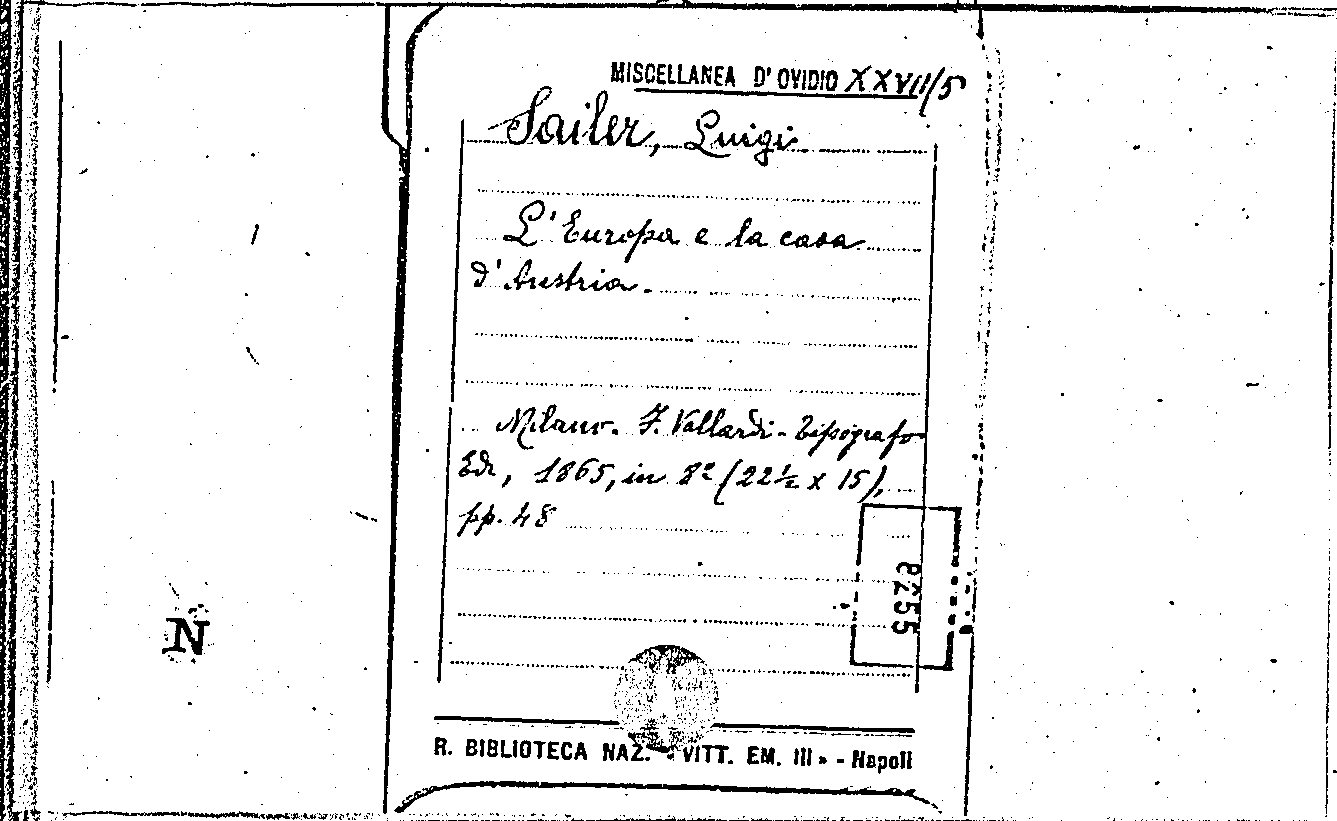 MISCELLANEA D' OVIDIO XXVII/5
Sailer, Luigi
L'Europa e la casa
d'Austria.
Milano. F. Vallardi - Tipografo
Edr, 1865, in 8º (22½ x 15),
pp. 48
8255
N
R. BIBLIOTECA NAZ. « VITT. EM. III » - Napoli